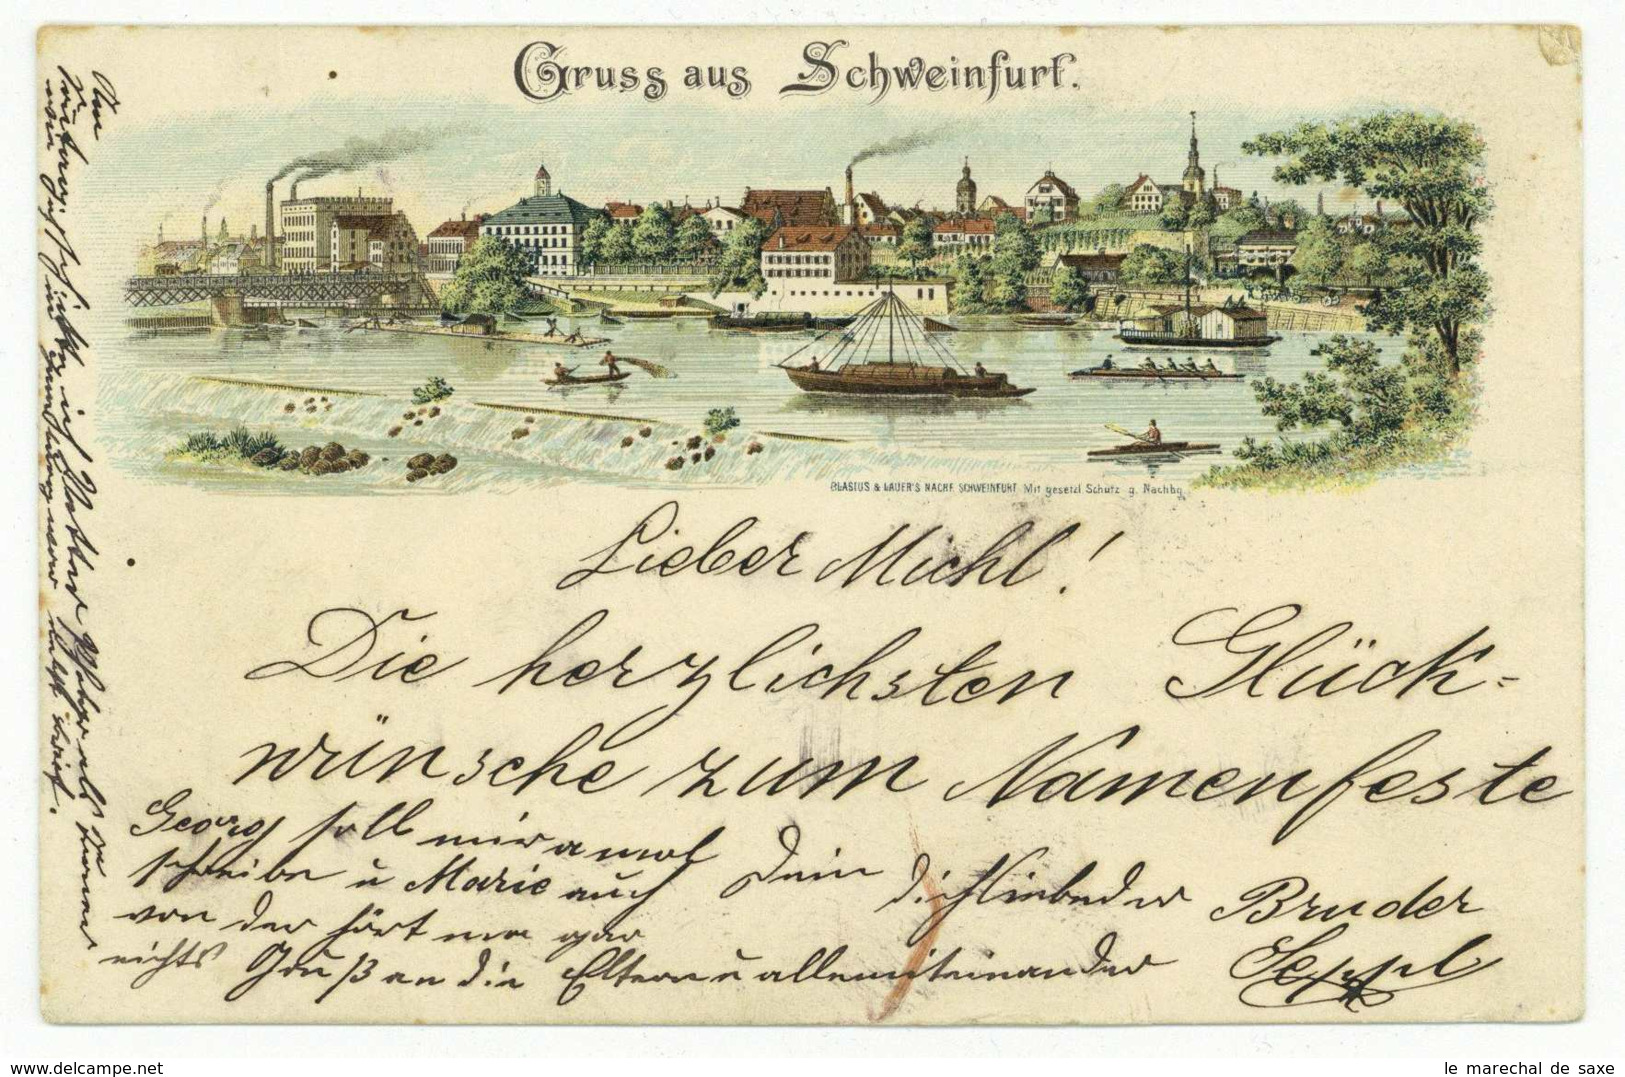 Gruss aus Schweinfurt.
BLASIUS & LAUER'S NACHF. SCHWEINFURT Mit gesetzl Schutz g. Nachbg.
Lieber Michl!
Die herzlichsten Glück-
wünsche zum Namenfeste
Georg soll mir amol
schreibn u Marie auch
von der hört ma gar
nichts Gruß an die Eltern u allemiteinander
Dein dichliebender Bruder
Seppl
le marechal de saxe